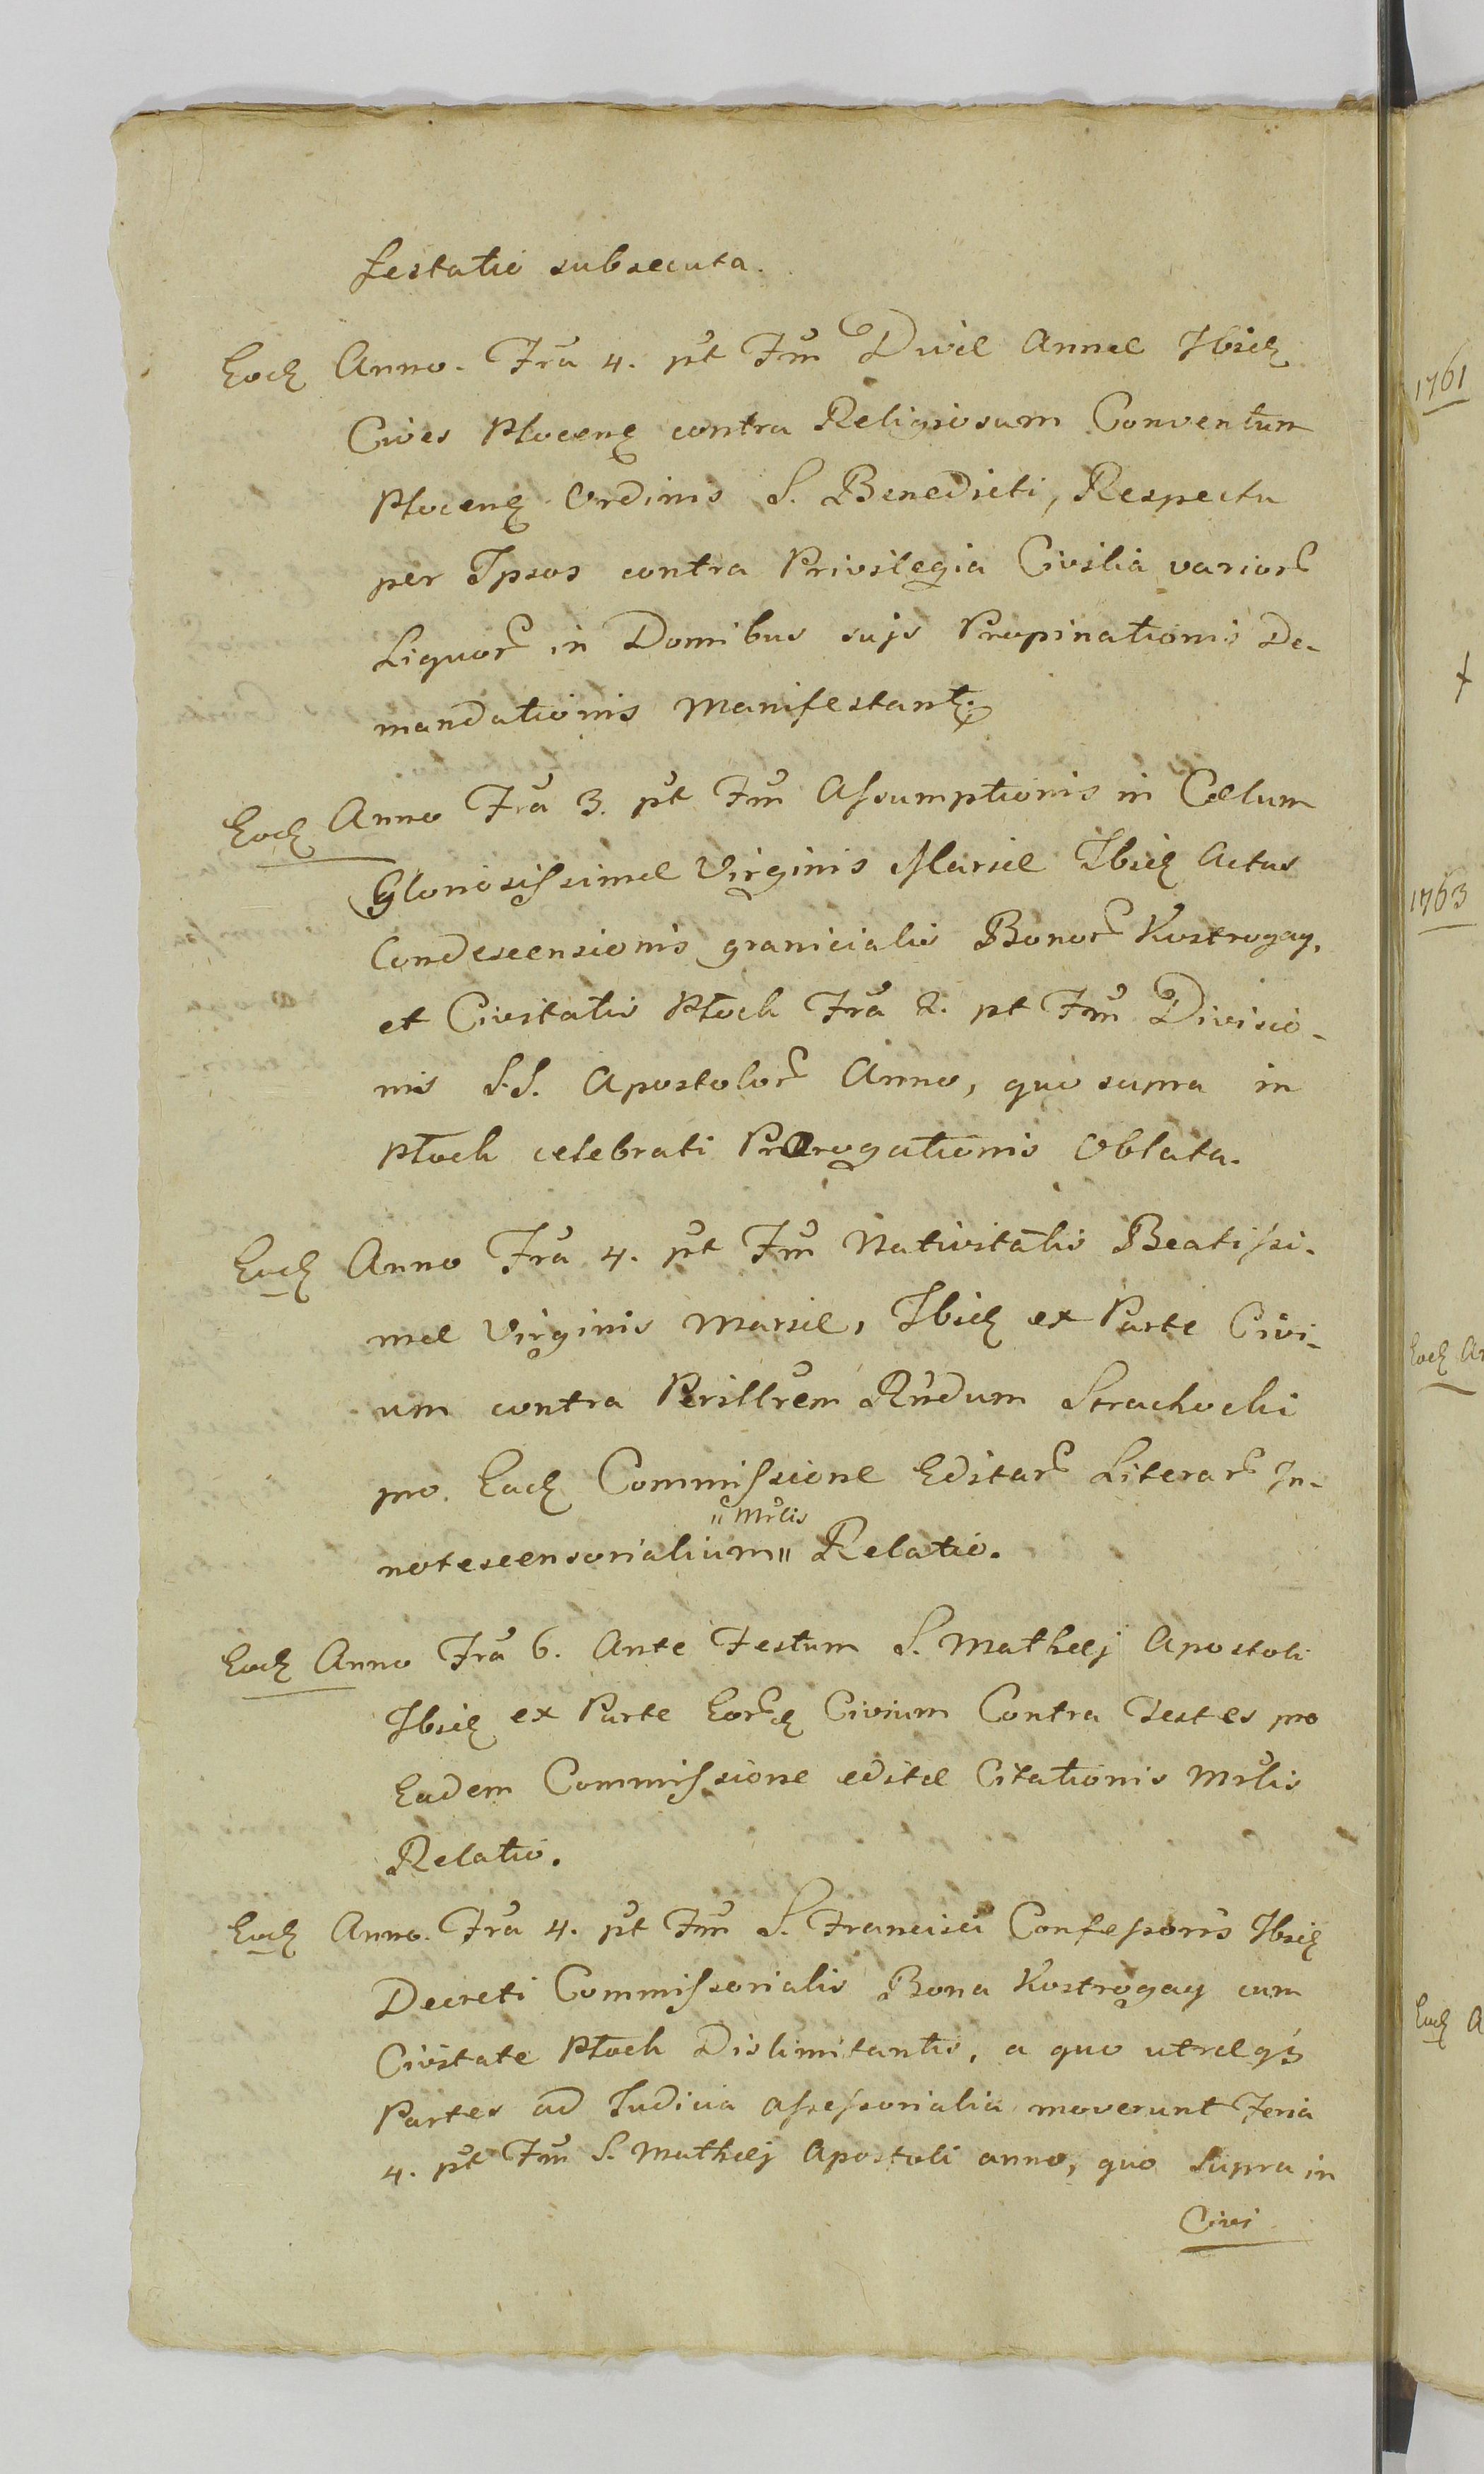 festatio subsecuta.
Eod Anno. Fra 4. pt Fm Divæ Annæ Ibid
Cives Plocens contra Religiosum Conventum
Plocens Ordinis S. Benedicti, Respectu
per Ipsos contra Privilegia Civilia varior
Liquor in Domibus sujs Propinationis De-
mandationis Manifestant.
Eod Anno Fra 3. pt Fm Assumptionis in Cœlum
Gloriosissimæ Virginis Mariæ Ibid Actus
Condescensionis granicialis Bonor Kostrogay,
et Civitatis Płock Fra 2. pt Fm Divisio-
nis S.S. Apostolor Anno, quo supra in
Płock celebrati Prorogationis Oblata.
Eod Anno Fra 4. pt Fm Nativitatis Beatissi-
mæ Virginis Mariæ, Ibid ex Parte Civi-
um contra Perillrem Rndum Strachocki
pro Ead Commissione Editar Literar In-
notescensorialium " Relatio.
" Mrlis
Eod Anno Fra 6. Ante Festum S. Mathæj Apostoli
Ibid ex Parte Eord Civium Contra Testes pro
Eadem Commissione editæ Citationis Mrlis
Relatio.
Eod Anno. Fra 4. pt Fm S. Francisci Confessoris Ibid
Decreti Commissorialis Bona Kostrogay cum
Civitate Płock Dislimitantis, a quo utræq3
Partes ad Judicia Assessorialia moverunt Feria
4. pt Fm S. Mathæj Apostoli anno, quo supra in
Civi
1761
1763
Eod An
Eod A